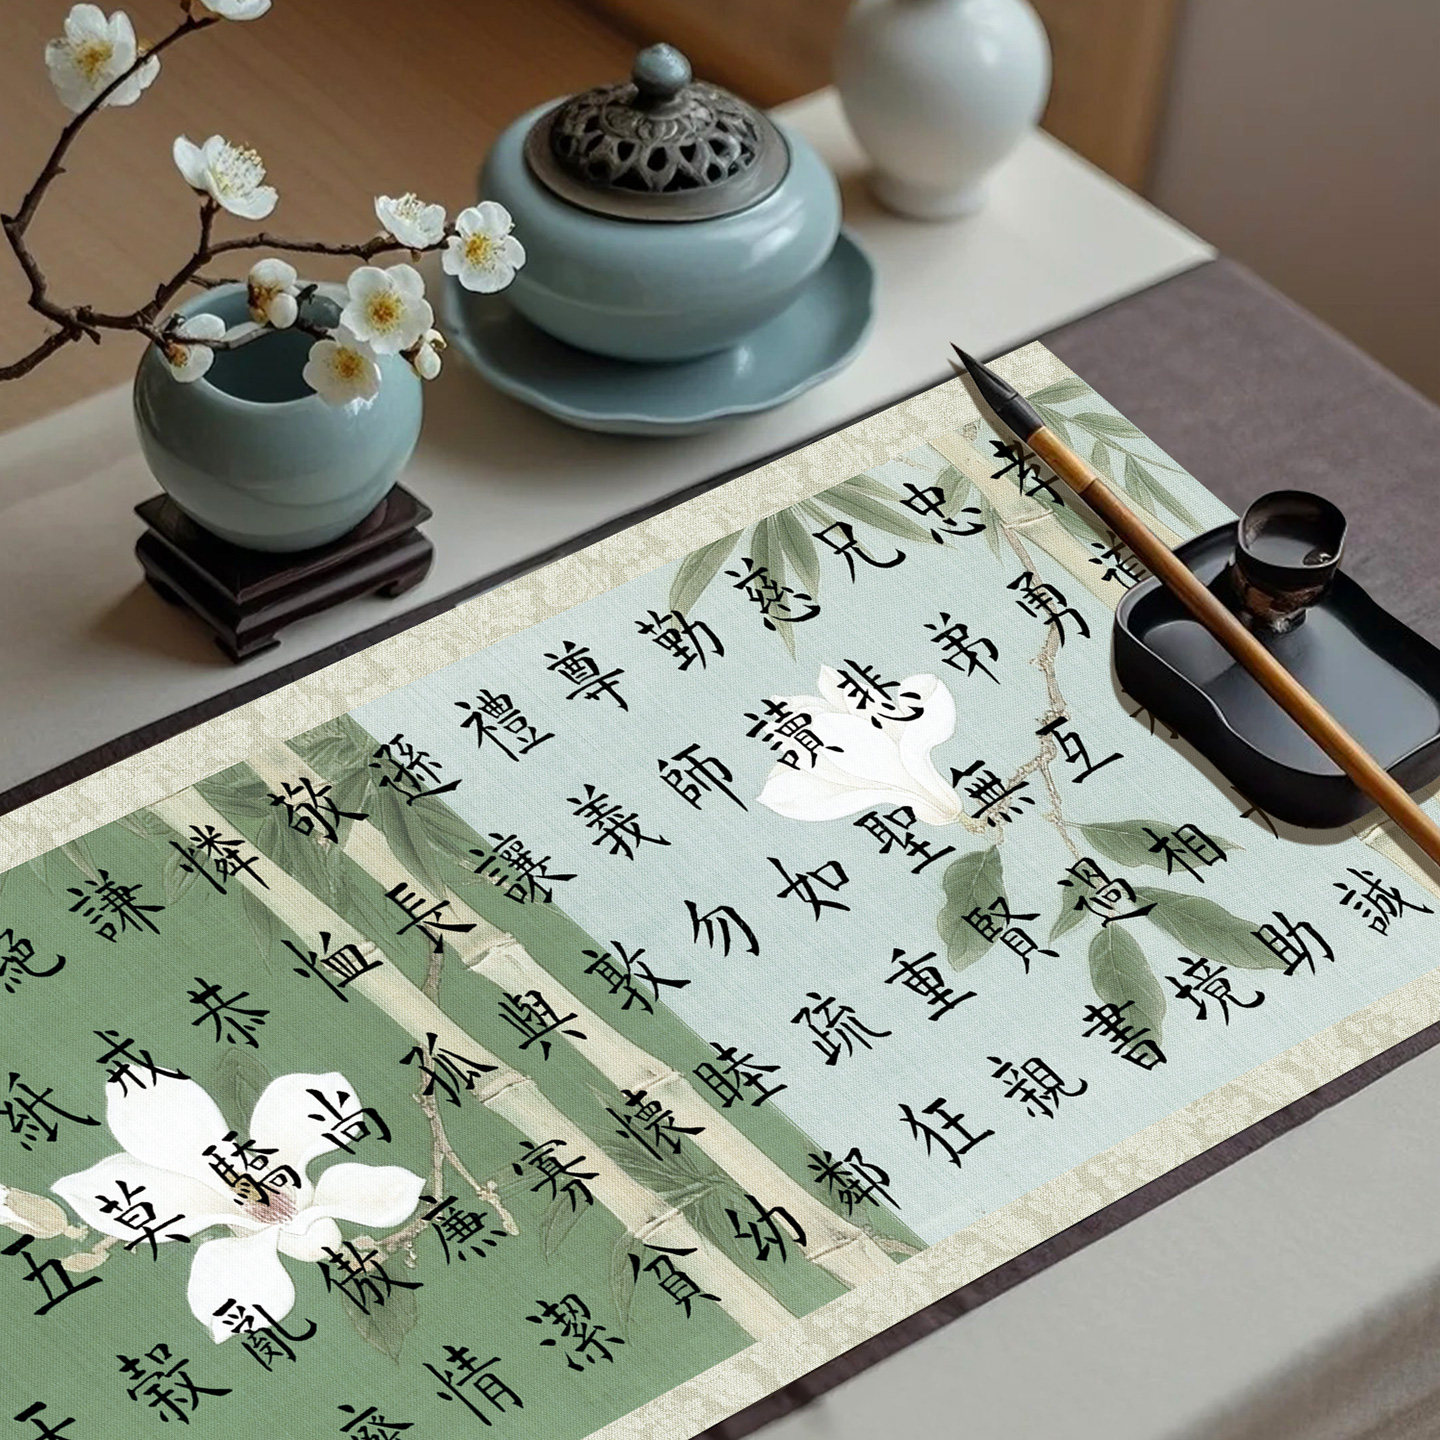 孝道
忠勇誠
兄弟互相助
慈悲無過境
勤讀聖賢書
尊師如重親
禮義勿疏狂
遜讓敦睦鄰
敬長與懷幼
憐恤孤寡貧
謙恭尚廉潔
絕戒驕傲情
紙莫亂廢
五穀